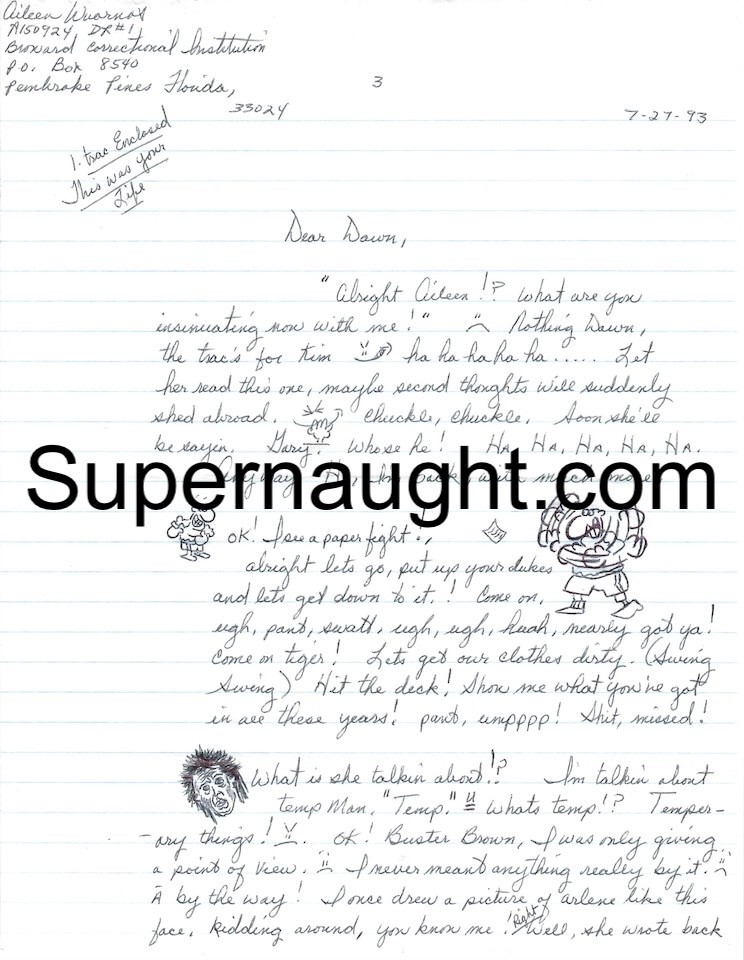 Aileen Wuornos
A150924, DR#1
Broward Correctional Institution
P.O. Box 8540
Pembroke Pines Florida,
33024
3
7-27-93
1. trac Enclosed
This was your
Life
Dear Dawn,
"Alright Aileen!? What are you
insinuating now with me!" Nothing Dawn,
the trac's for Kim ha ha ha ha ha..... Let
her read this one, maybe second thoughts will suddenly
shed abroad. Chuckle, chuckle. Soon she'll
be sayin. Gary. Whose he! HA, HA, HA, HA, HA.
Supernaught.com
OK! I see a paper fight.,
alright lets go, put up your dukes
and lets get down to it.! Come on,
ugh, pant, swatt, ugh, ugh, huah, nearly got ya!
Come on tiger! Lets get our clothes dirty. (Swing
Swing) Hit the deck! Show me what you've got
in all these years! pant, umpppp! Shit, missed!
What is she talkin about!? I'm talkin about
temp Man, "Temp." Whats temp!? Temper-
-ary things! OK! Buster Brown, I was only giving
a point of view. I never meant anything really by it.
A by the way! I once drew a picture of arlene like this
face. Kidding around, you know me! Right Well, she wrote back